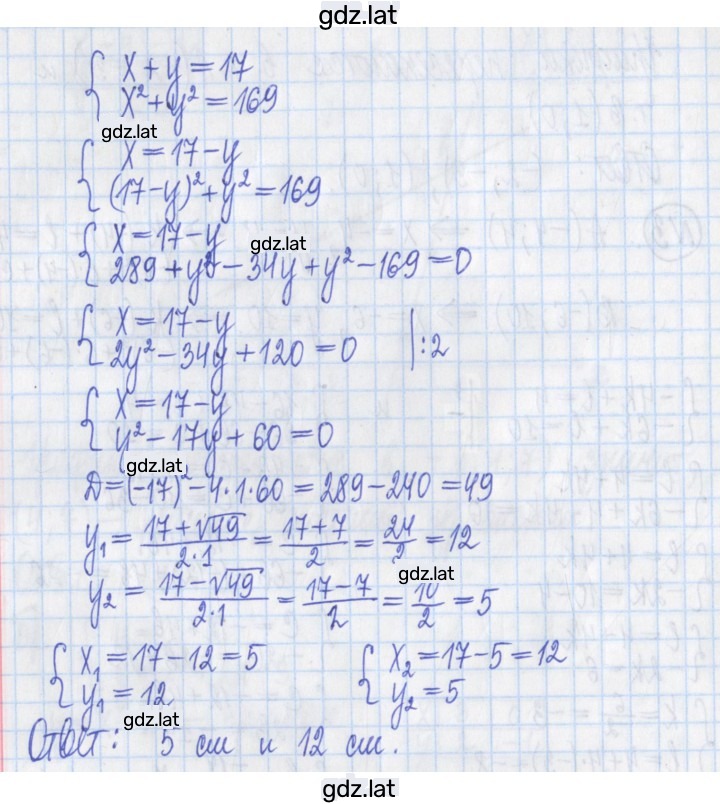 gdz.lat
{ x + y = 17
x² + y² = 169
gdz.lat
{ x = 17 - y
(17 - y)² + y² = 169
{ x = 17 - y
gdz.lat
289 + y² - 34y + y² - 169 = 0
{ x = 17 - y
2y² - 34y + 120 = 0 | :2
{ x = 17 - y
y² - 17y + 60 = 0
gdz.lat
Д = (-17)² - 4·1·60 = 289 - 240 = 49
y₁ = (17 + √49)/(2·1) = (17 + 7)/2 = 24/2 = 12
gdz.lat
y₂ = (17 - √49)/(2·1) = (17 - 7)/2 = 10/2 = 5
{ x₁ = 17 - 12 = 5 { x₂ = 17 - 5 = 12
y₁ = 12 y₂ = 5
gdz.lat
Ответ: 5 см и 12 см.
gdz.lat